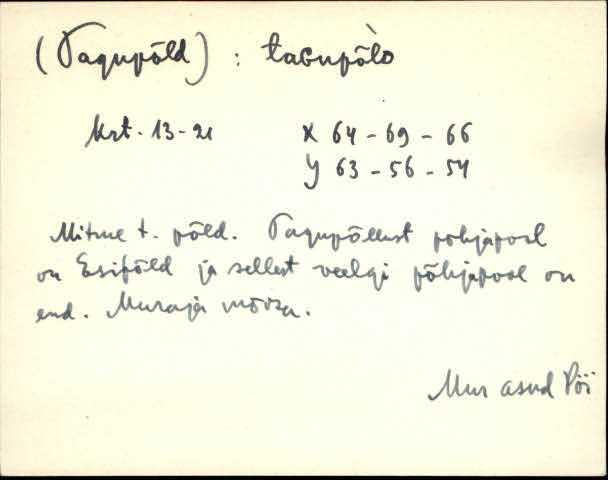 (Tagupõld) : taGupò̭lD
krt. 13-21 X 64-69-66
Y 63-56-54
Mitme t. põld. Tagupõllust põhjapool
on Esipõld ja sellest veelgi põhjapool on
end. Muraja mõisa.
Mur asund Pöi